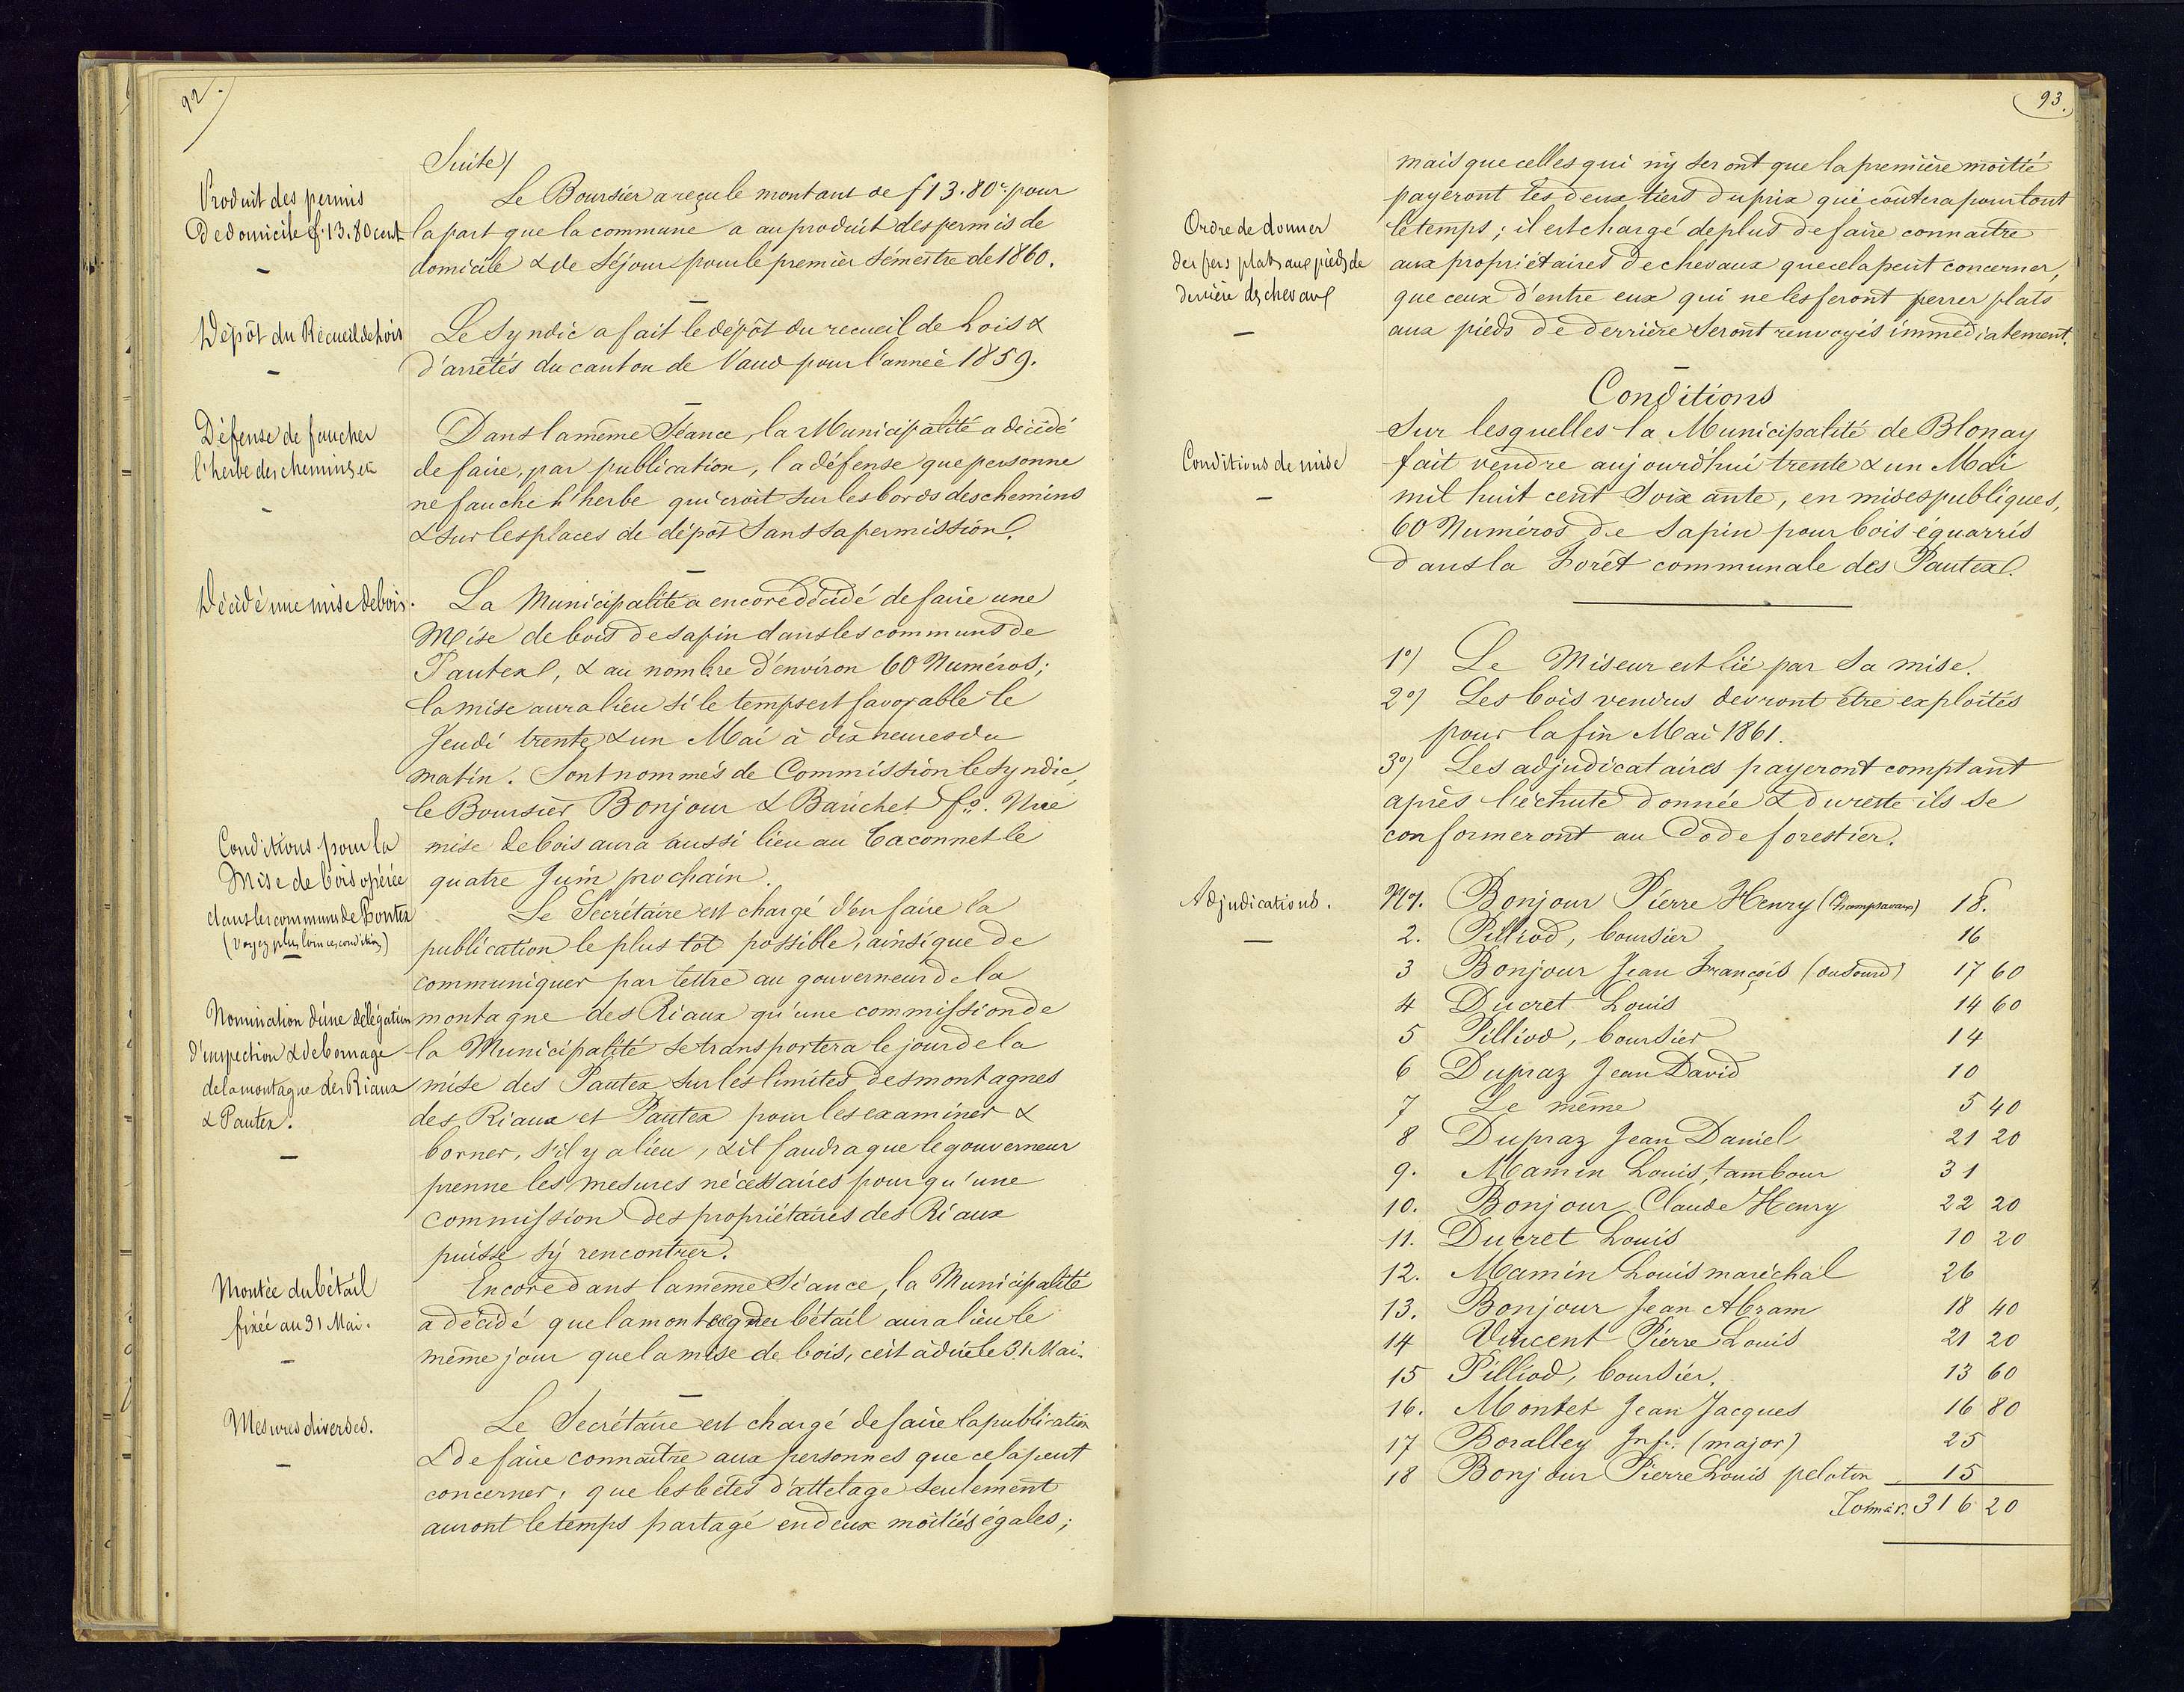 92.
Suite/
Produit des permis
De domicile f. 13.80 cent
Le Boursier a reçu le montant de f 13.80c. pour
la part que la commune a au produit des permis de
domicile & de Séjour pour le premier Sémestre de 1860.
Dépôt du Recueil de Lois
Le Syndic a fait le dépôt du recueil de Lois &
d'arrêtés du canton de Vaud pour l'année 1859.
Défense de faucher
l'herbe des chemins etc
Dans la même Séance, la Municipalité a décidé
de faire, par publication, la défense que personne
ne fauche l'herbe qui croit sur les bords des chemins
& sur les places de dépôt Sans sa permission.
Décidé une mise de bois.
La Municipalité a encore décidé de faire une
Mise de bois de sapin dans les communs de
Pautex, & au nombre d'environ 60 Numéros;
la mise aura lieu si le temps est favorable le
Jeudi trente & un Mai à dix heures du
matin. Sont nommés de Commission le Syndic,
le Boursier Bonjour & Bauchet fs. Une
mise de bois aura aussi lieu au Caconnet le
quatre Juin prochain.
Conditions pour la
Mise de bois opérée
dans les communs de Pontex
(voyez plus loin ces conditions)
Le Secrétaire est chargé d'en faire la
publication le plus tôt possible, ainsi que de
communiquer par lettre au gouverneur de la
montagne des Riaux qu'une commission de
la Municipalité se transportera le jour de la
mise des Pautex sur les limites des montagnes
des Riaux et Pautex pour les examiner &
borner, s'il y a lieu, & il faudra que le gouverneur
prenne les mesures nécessaires pour qu'une
commission des propriétaires des Riaux
puisse s'y rencontrer.
Nomination d'une délégation
d'inspection & de bornage
de la montagne des Riaux
& Pautex.
Montée du bétail
fixée au 31 Mai.
Encore dans la même Séance, la Municipalité
a décidé que la montée du bétail aura lieu le
même jour que la mise de bois, c'est à dire le 31 Mai.
Mesures diverses.
Le Secrétaire est chargé de faire la publication
& de faire connaître aux personnes que cela peut
concerner, que les bêtes d'attelage seulement
auront le temps partagé en deux moitiés égales;
93.
mais que celles qui n'y seront que la première moitié
payeront les deux tiers du prix que coûtera pour tout
le temps; il est chargé de plus de faire connaître
aux propriétaires de chevaux que cela peut concerner,
que ceux d'entre eux qui ne les feront ferrer plats
aux pieds de derrière seront renvoyés immédiatement.
Ordre de donner
des fers plats aux pieds de
derrière des chevaux
Conditions
Sur lesquelles la Municipalité de Blonay
fait vendre aujourd'hui trente & un Mai
mil huit cent Soixante, en mises publiques,
60 Numéros de Sapin pour bois équarris
dans la Forêt communale des Pautex.
Conditions de mise
1o/ Le Miseur est lié par Sa mise.
2o/ Les bois vendus devront être exploités
pour la fin Mai 1861.
3o/ Les adjudicataires payeront comptant
après l'échute donnée & du reste ils se
conformeront au Code forestier.
Adjudications.
No 1. Bonjour Pierre Henry (Champsavaux) 18.
2. Pilliod, boursier 16
3 Bonjour Jean François (du Sourd) 17 60
4 Ducret Louis 14 60
5 Pilliod, boursier 14
6 Dupraz Jean David 10
7 Le même 5 40
8 Dupraz Jean Daniel 21 20
9. Mamin Louis, tambour 31
10. Bonjour Claude Henry 22 20
11. Ducret Louis 10 20
12. Mamin Louis maréchal 26
13. Bonjour Jean Abram 18 40
14 Vincent Pierre Louis 21 20
15 Pilliod, boursier, 13 60
16. Montet Jean Jacques 16 80
17 Boralley (major) 25
18 Bonjour Pierre Louis peloton 15
316 20